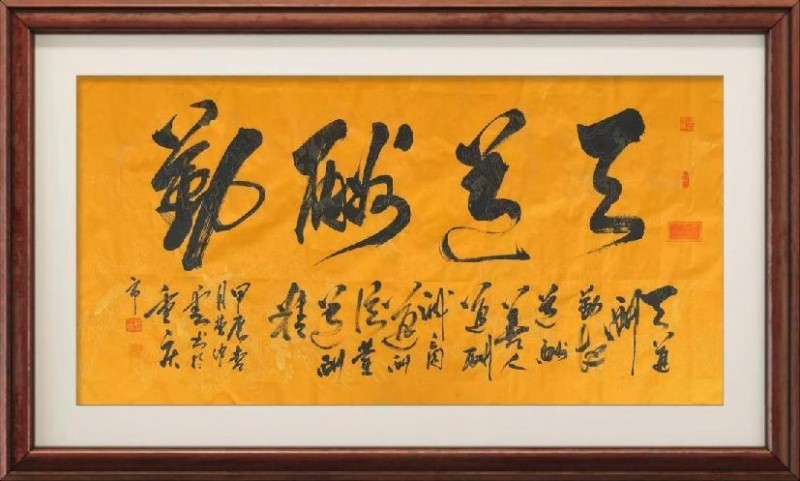 天道酬勤
天道
酬
勤地
道酬
善人
道酬
诚商
道酬
信業
道酬
精
甲辰
月
雲书於
重庆
市